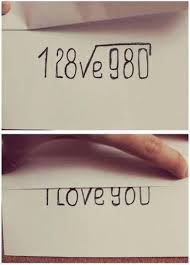 128√e980
I LOVE YOU